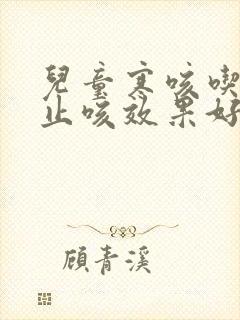 兒童寒咳喫
止咳效果好
顧青溪